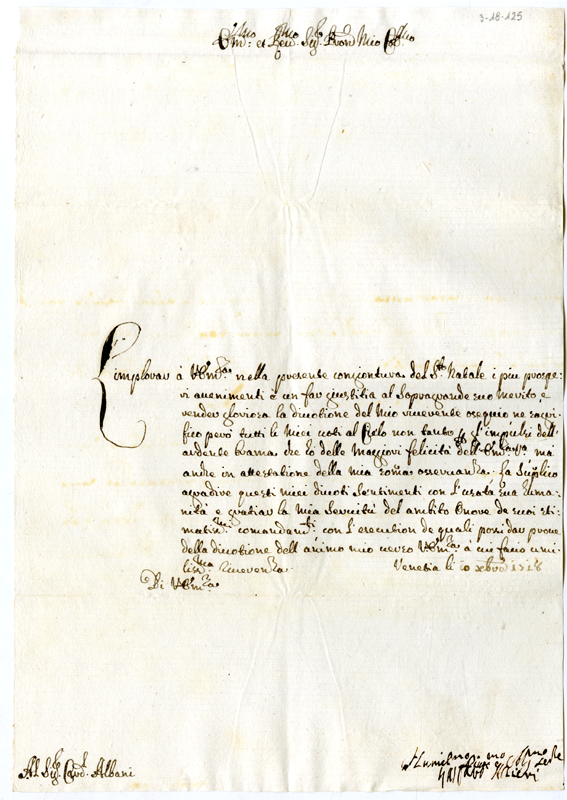 3-18-125
Em.mo et Rev.mo Sig.r Pron Mio Col.mo
L'implorar à V.Em.za nella presente congiontura del S.to Natale i piu prospe-
ri avenimenti è un far giustitia al Sopragrande suo Merito è
render gloriosa la divotione del Mio riverente osequio ne sagri-
fico però tutti li Miei voti al Cielo non tanto p gl'impulsi dell'
ardente brama che hò delle Maggiori felicità dell'Em.za V.a ma
anche in attestatione della mia osservanza. La Suplico
agradire questi miei divoti Sentimenti con l'usata sua Uma-
nità e gratiar la Mia Servitù del ambito Onore de suoi sti-
matis.mi comandam.ti con l'esecution de quali possi dar prove
della divotione dell'animo mio verso V.Em.za à cui facio umi-
lis.ma Riverenza. Venetia li 10 Xbre 1718
Di V.Em.za
Al Sig.r Card.l Albani